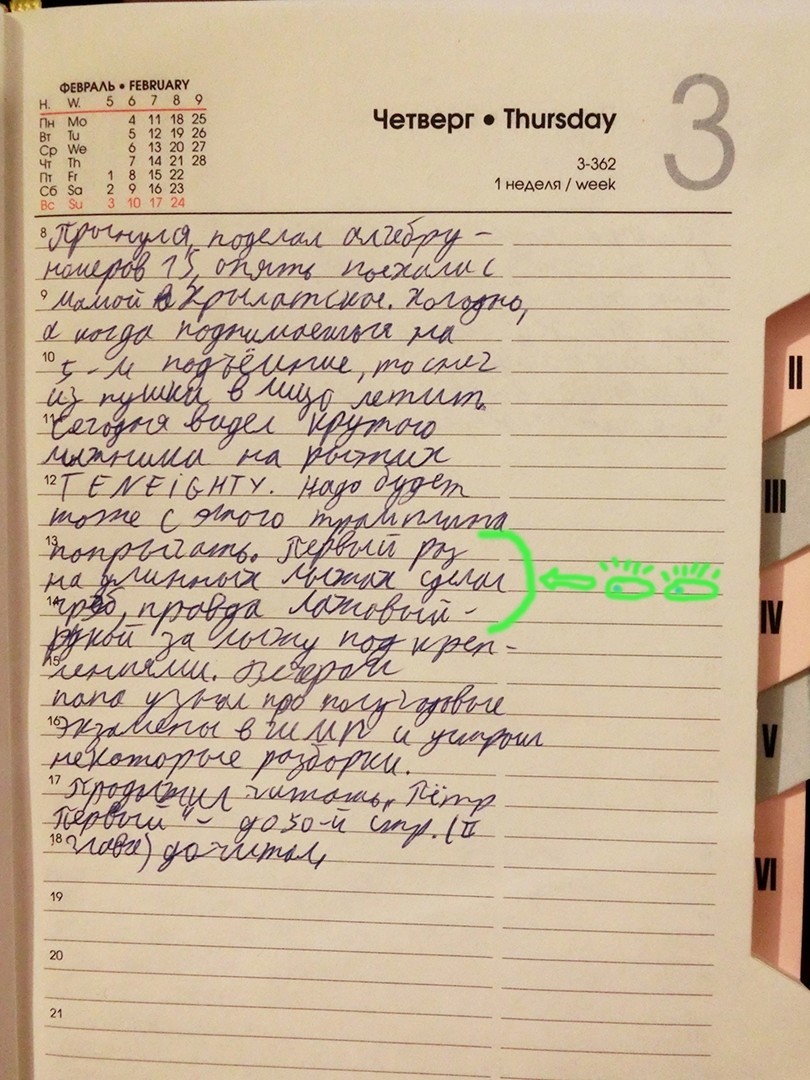 ФЕВРАЛЬ • FEBRUARY
Н. W. 5 6 7 8 9
Пн Mo 4 11 18 25
Вт Tu 5 12 19 26
Ср We 6 13 20 27
Чт Th 7 14 21 28
Пт Fr 1 8 15 22
Сб Sa 2 9 16 23
Вс Su 3 10 17 24
Четверг • Thursday
3
3-362
1 неделя / week
8 Проснулся, поделал алгебру -
номеров 15, опять поехали с
9 мамой в Крылатское. Холодно,
а когда поднимаешься на
10 5-м подъёмнике, то снег
из пушки в лицо летит.
11 Сегодня видел крутого
лыжника на рыжих
12 TENEIGHTY. Надо будет
тоже с этого трамплина
13 попрыгать. Первый раз
на длинных лыжах сделал
14 грэб, правда лажовый -
рукой за лыжу под креп-
15 лениями. Вечером
папа узнал про полугодовые
16 экзамены в и устроил
некоторые разборки.
17 Продолжил читать „Пётр
Первый" - до 50-й стр. (II
18 глава) дочитал,
19
20
21
II
III
IV
V
VI